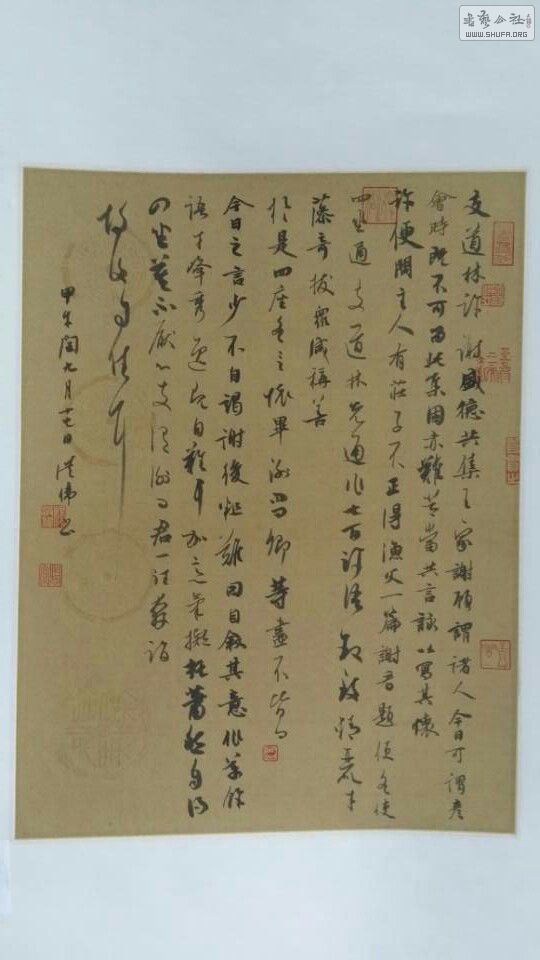 書藝公社
WWW.SHUFA.ORG
支道林許謝盛德共集王家謝顧謂諸人今日可謂彥
會時既不可留此集固亦難常當共言詠以寫其懷
許便問主人有莊子不正得漁父一篇謝看題便各使
四坐通支道林先通作七百許語敘致精麗才
藻奇拔眾咸稱善
於是四座各言懷畢謝問卿等盡不皆曰
今日之言少不自竭謝後粗難因自敘其意作萬餘
語才峰秀逸既自難干加意氣擬托蕭然自得
四坐莫不厭心支謂謝曰君一往奔詣
故復自佳耳
甲午閏九月十七日偉書